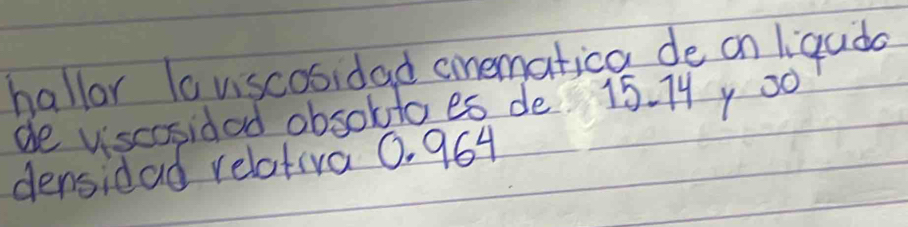 hallar la viscosidad cinematica de un liquido
de viscosidad absoluta es de 15.14 y so
densidad relativa 0.964